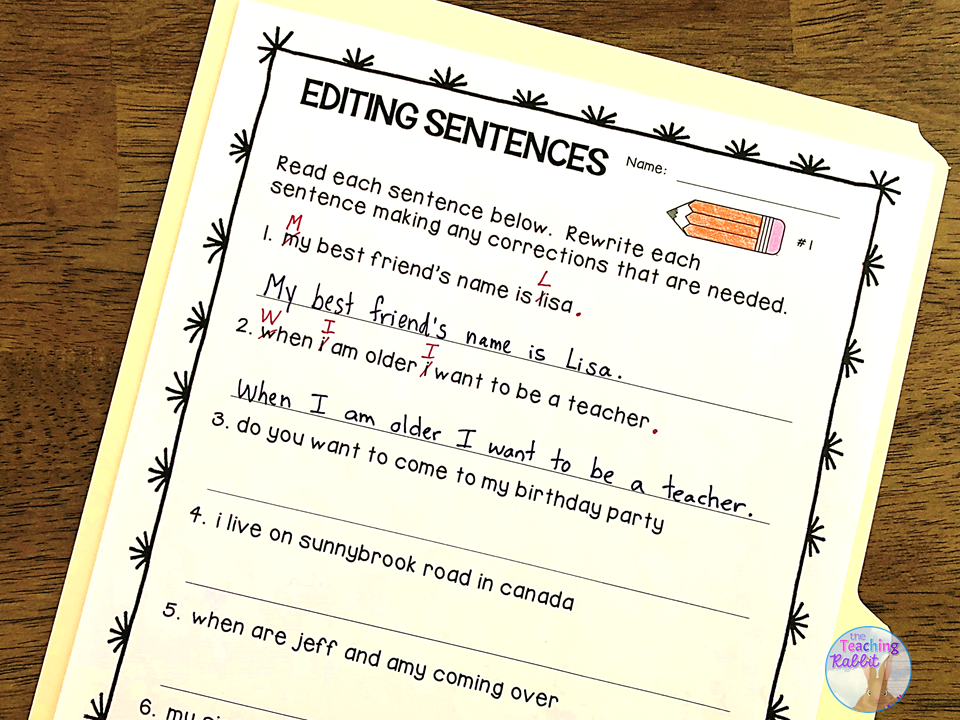 EDITING SENTENCES
Name:
Read each sentence below. Rewrite each
sentence making any corrections that are needed.
#1
M L
1. my best friend's name is lisa.
My best friend's name is Lisa.
W I I
2. when i am older i want to be a teacher.
When I am older I want to be a teacher.
3. do you want to come to my birthday party
4. i live on sunnybrook road in canada
5. when are jeff and amy coming over
6. my
the
Teaching
Rabbit